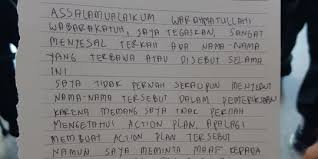 ASSALAMUALAIKUM WARAHMATULLAHI
WABARAKATUH, SAYA TEGASKAN, SANGAT
MENYESAL TERKAH ADA NAMA-NAMA
YANG TERBAWA ATAU DISEBUT SELAMA
INI
SAYA TIDAK PERNAH SEKALIPUN MENYEBUT
NAMA-NAMA TERSEBUT DALAM PEMERIKSAAN
KARENA MEMANG SAYA TIDAK PERNAH
MENGETAHUI ACTION PLAN, APALAGI
MEMBUAT ACTION PLAN TERSEBUT
NAMUN SAYA MEMINTA MAAF KEPADA